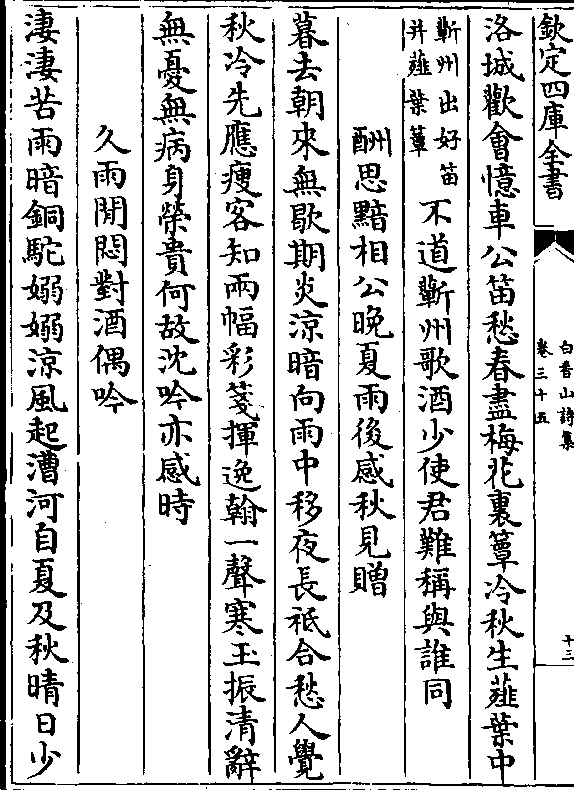 欽定四庫全書
白香山詩集
卷三十五
十三
洛城歡會憶車公笛愁春盡梅花裏簟冷秋生薤葉中
蘄州出好笛
并薤葉簟
不道蘄州歌酒少使君難稱與誰同
酬思黯相公晚夏雨後感秋見贈
暮去朝來無歇期炎涼暗向雨中移夜長祗合愁人覺
秋冷先應瘦客知兩幅彩箋揮逸翰一聲寒玉振清辭
無憂無病身榮貴何故沈吟亦感時
久雨閒悶對酒偶吟
淒淒苦雨暗銅駝嫋嫋涼風起漕河自夏及秋晴日少